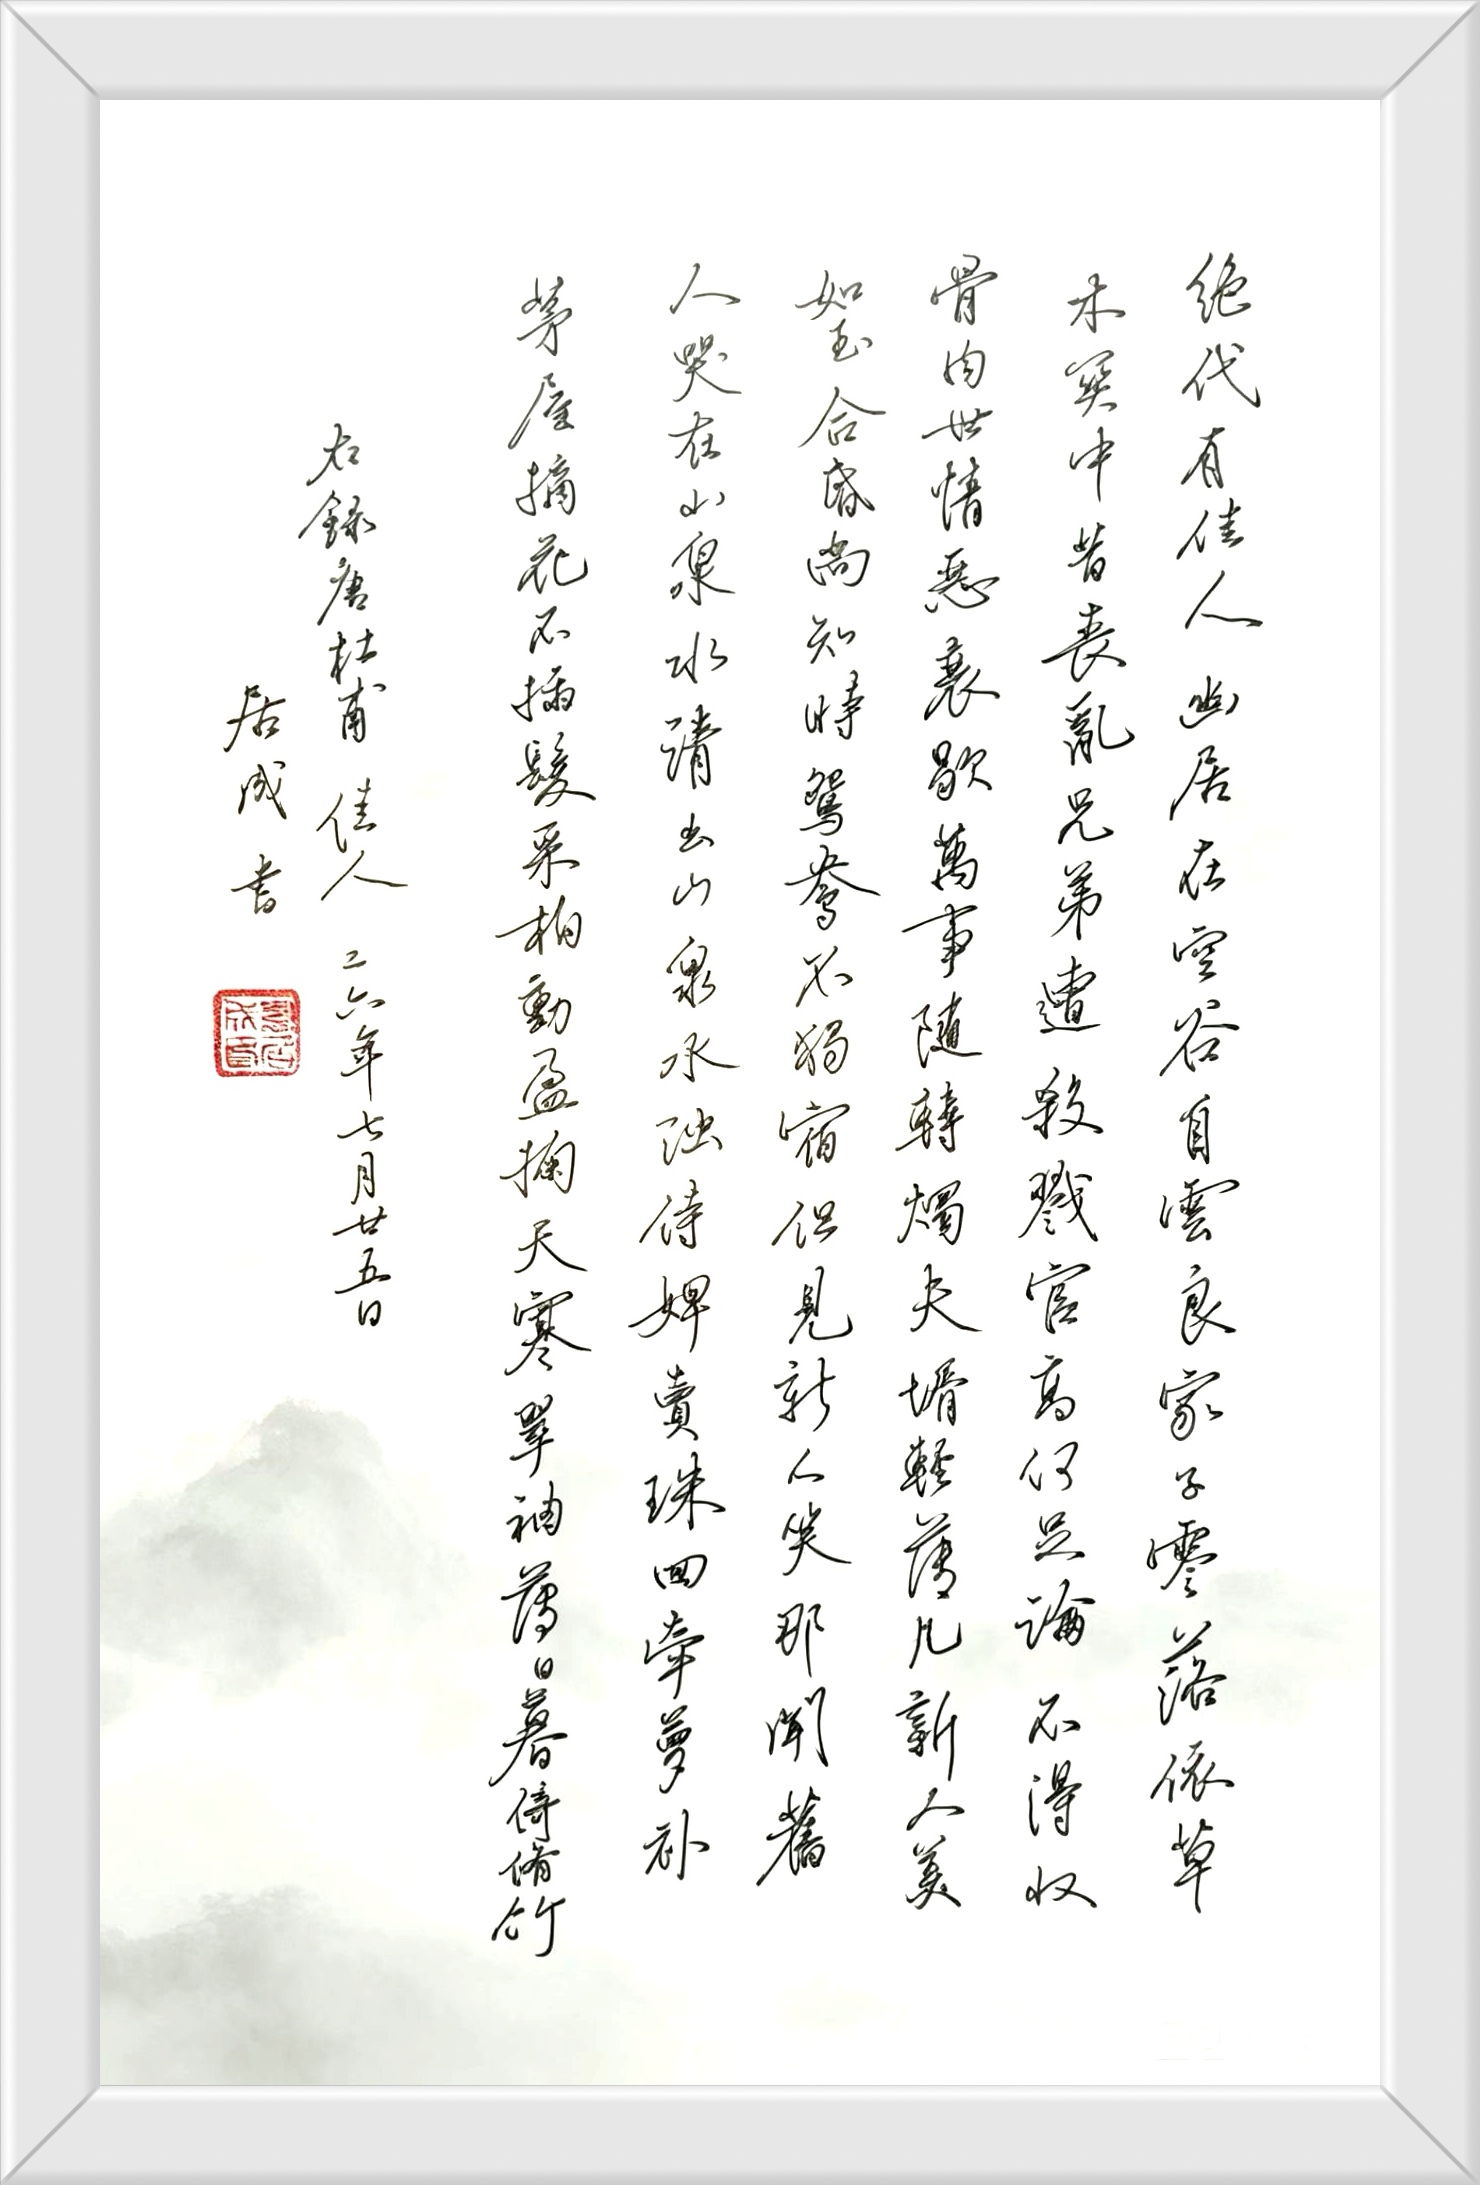 絶代有佳人幽居在空谷自雲良家子零落依草
木関中昔喪亂兄弟遭殺戮官高何足論不得收
骨肉世情惡衰歇萬事隨轉燭夫壻輕薄儿新人美
如玉合昏尚知時鴛鴦不獨宿但見新人笑那聞舊
人哭在山泉水清出山泉水浊侍婢賣珠回牽萝补
茅屋摘花不插髮采柏動盈掬天寒翠袖薄日暮倚脩竹
右録唐杜甫 佳人 二六年七月廿五日
居成 书